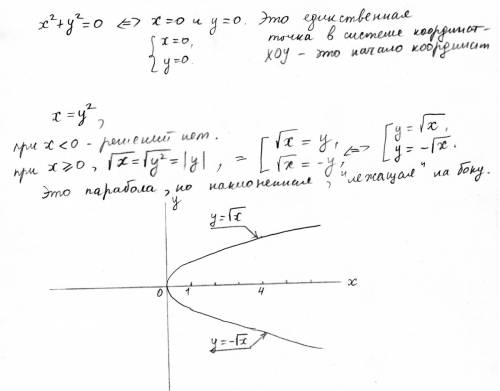 x²+y²=0 <=> x=0 и y=0. Это единственная
{x=0, y=0. точка в системе координат-
XOY - это начало координат
x=y²,
при x<0 - решений нет.
при x≥0, √x=√y²=|y|, = [√x=y, √x=-y, <=> [y=√x, y=-√x.
Это парабола, но наклоненная, "лежащая" на боку.
y
y=√x
0 1 4 x
y=-√x